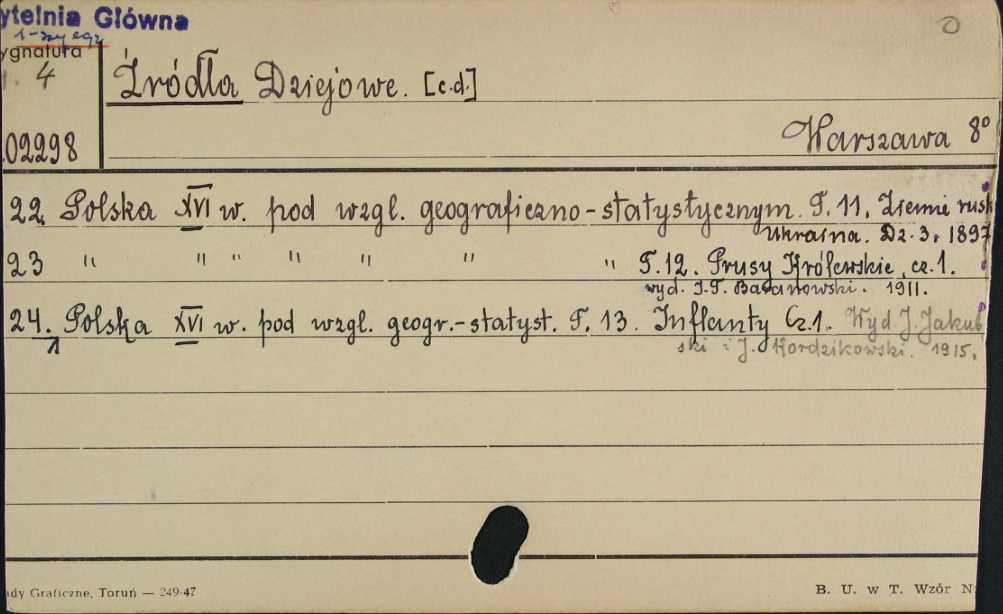 ytelnia Główna
1-szy egz
ygnatura
1. 4
02298
Źródła Dziejowe. [c.d.]
Warszawa 8°
22. Polska XVI w. pod wzgl. geograficzno-statystycznym. T. 11. Ziemie rusk
Ukraina. Dz. 3. 1897
23 " " " " " " " T. 12. Prusy Królewskie, cz. 1.
wyd. I. T. Baranowski. 1911.
24. Polska XVI w. pod wzgl. geogr.-statyst. T. 13. Inflanty Cz. 1. Wyd. J. Jakub
1
ski i J. Kordzikowski. 1915.
ady Graficzne, Toruń — 249-47
B. U. w T. Wzór N